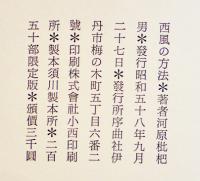 西風の方法＊著者河原枇杷
男＊發行昭和五十八年九月
二十七日＊發行所序曲社伊
丹市梅の木町五丁目六番二
號＊印刷株式會社小西印刷
所＊製本須川製本所＊二百
五十部限定版＊頒價三千圓